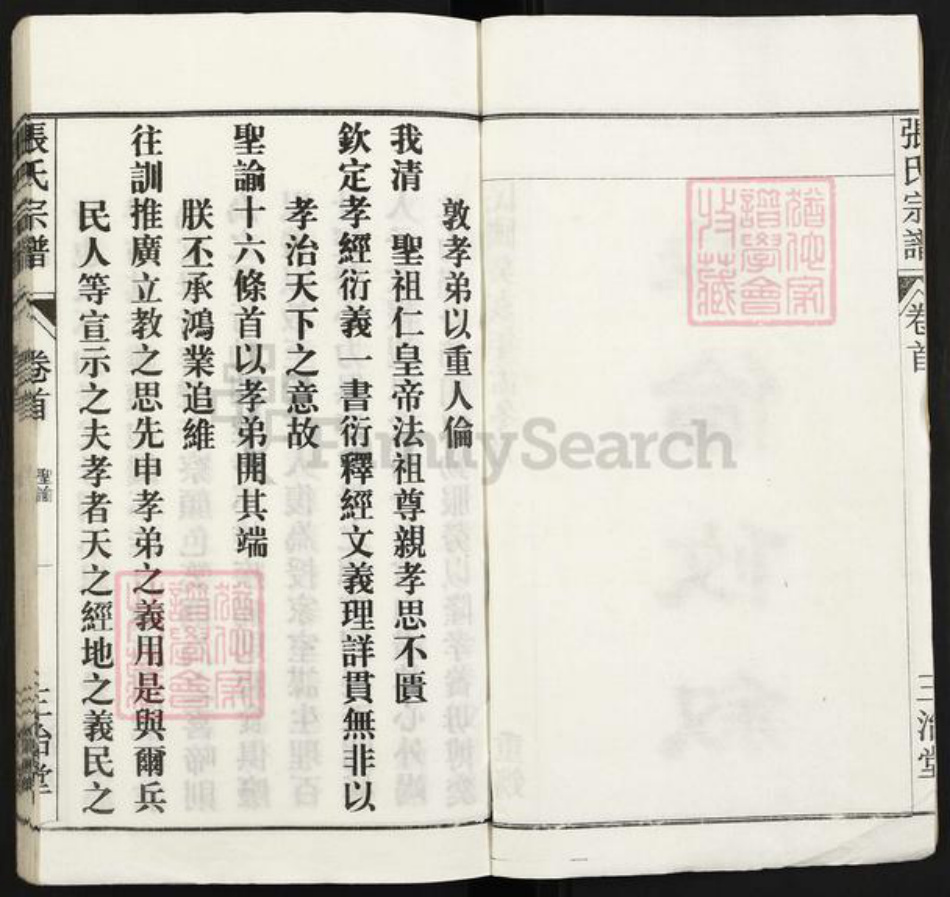 張氏宗譜
卷首
三治堂
敦孝弟以重人倫
我清　聖祖仁皇帝法祖尊親孝思不匱
欽定孝經衍義一書衍釋經文義理詳貫無非以
孝治天下之意故
聖諭十六條首以孝弟開其端
朕丕承鴻業追維
往訓推廣立教之思先申孝弟之義用是與爾兵
民人等宣示之夫孝者天之經地之義民之
張氏宗譜
卷首
聖諭
一
三治堂
FamilySearch